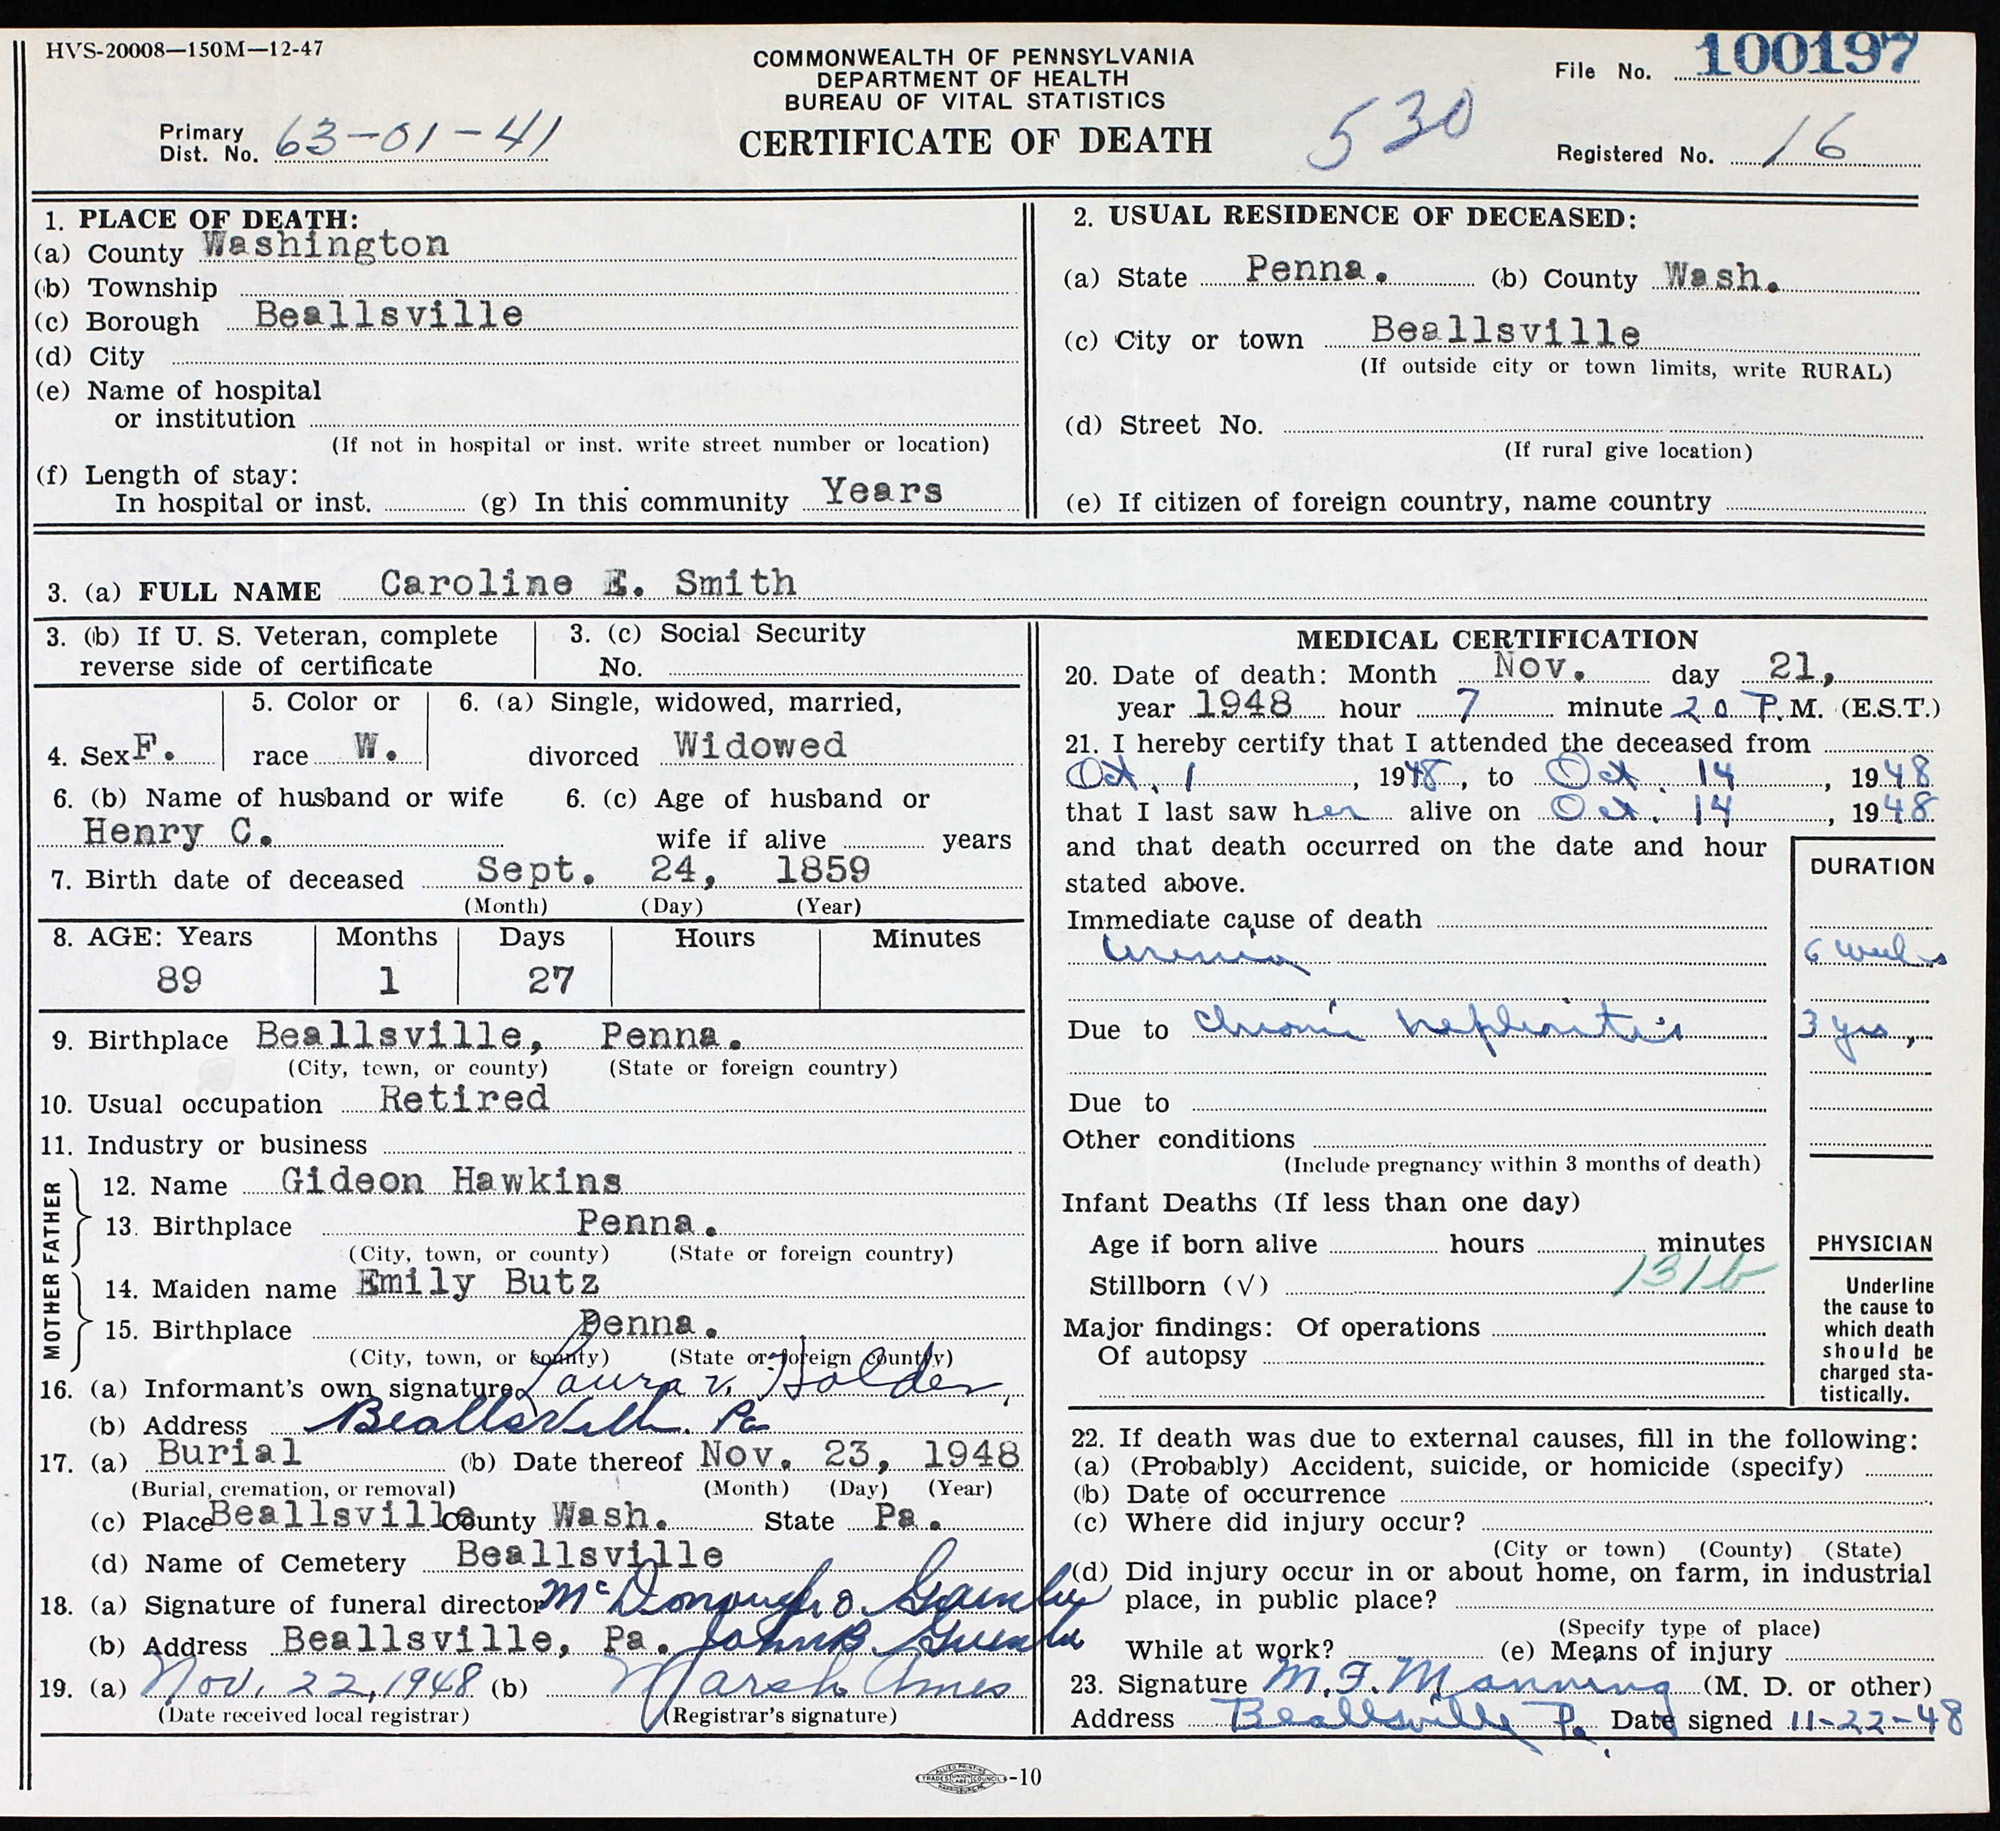 HVS-20008—150M—12-47
COMMONWEALTH OF PENNSYLVANIA
DEPARTMENT OF HEALTH
BUREAU OF VITAL STATISTICS
CERTIFICATE OF DEATH
530
File No. 100197
Primary
Dist. No. 63-01-41
Registered No. 16
1. PLACE OF DEATH:
(a) County Washington
(b) Township
(c) Borough Beallsville
(d) City
(e) Name of hospital
or institution
(If not in hospital or inst. write street number or location)
(f) Length of stay:
In hospital or inst. (g) In this community Years
2. USUAL RESIDENCE OF DECEASED:
(a) State Penna. (b) County Wash.
(c) City or town Beallsville
(If outside city or town limits, write RURAL)
(d) Street No.
(If rural give location)
(e) If citizen of foreign country, name country
3. (a) FULL NAME Caroline E. Smith
3. (b) If U. S. Veteran, complete
reverse side of certificate
3. (c) Social Security
No.
4. Sex F.
5. Color or
race W.
6. (a) Single, widowed, married,
divorced Widowed
6. (b) Name of husband or wife
Henry C.
6. (c) Age of husband or
wife if alive years
7. Birth date of deceased Sept. 24, 1859
(Month) (Day) (Year)
8. AGE: Years Months Days Hours Minutes
89 1 27
9. Birthplace Beallsville, Penna.
(City, town, or county) (State or foreign country)
10. Usual occupation Retired
11. Industry or business
FATHER
12. Name Gideon Hawkins
13. Birthplace Penna.
(City, town, or county) (State or foreign country)
MOTHER
14. Maiden name Emily Butz
15. Birthplace Penna.
(City, town, or county) (State or foreign country)
16. (a) Informant's own signature Laura V. Holder,
(b) Address Beallsville. Pa
17. (a) Burial (b) Date thereof Nov. 23, 1948
(Burial, cremation, or removal) (Month) (Day) (Year)
(c) Place Beallsville County Wash. State Pa.
(d) Name of Cemetery Beallsville
18. (a) Signature of funeral director McDonough &
(b) Address Beallsville, Pa. John B.
19. (a) Nov. 22, 1948 (b) Marsh Ames
(Date received local registrar) (Registrar's signature)
MEDICAL CERTIFICATION
20. Date of death: Month Nov. day 21,
year 1948 hour 7 minute 20 P.M. (E.S.T.)
21. I hereby certify that I attended the deceased from
Oct. 1, 1948, to Oct. 14, 1948
that I last saw her alive on Oct. 14, 1948
and that death occurred on the date and hour
stated above.
DURATION
Immediate cause of death
Uremia 6 weeks
Due to Chronic nephritis 3 yrs,
Due to
Other conditions
(Include pregnancy within 3 months of death)
Infant Deaths (If less than one day)
Age if born alive hours minutes
Stillborn (√) 131b
Major findings: Of operations
Of autopsy
PHYSICIAN
Underline
the cause to
which death
should be
charged sta-
tistically.
22. If death was due to external causes, fill in the following:
(a) (Probably) Accident, suicide, or homicide (specify)
(b) Date of occurrence
(c) Where did injury occur?
(City or town) (County) (State)
(d) Did injury occur in or about home, on farm, in industrial
place, in public place?
(Specify type of place)
While at work? (e) Means of injury
23. Signature M. F. Manning (M. D. or other)
Address Beallsville Pa. Date signed 11-22-48
-10